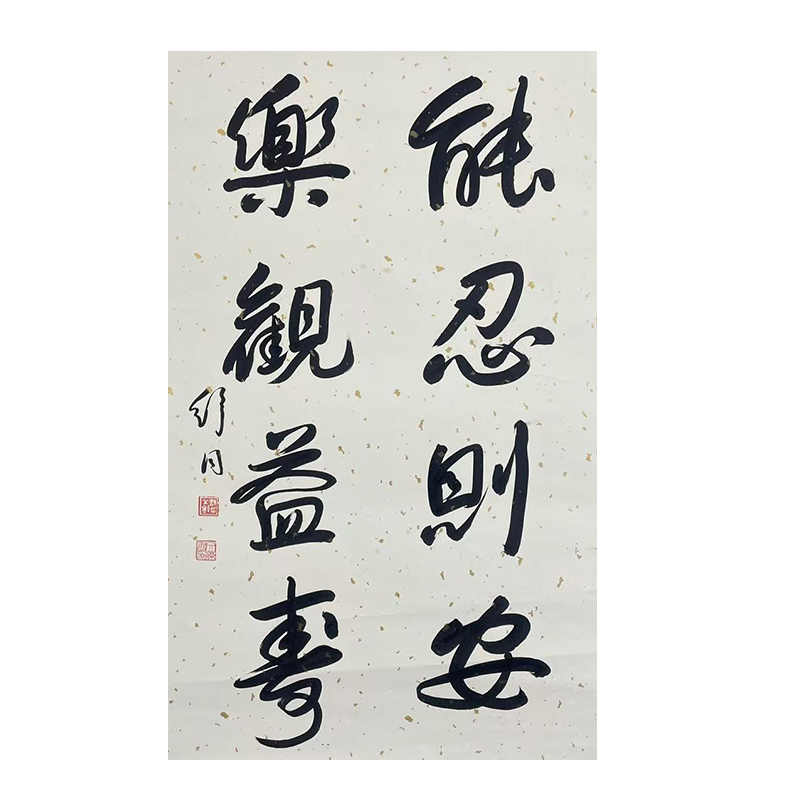 能忍則安
樂觀益壽
舒同